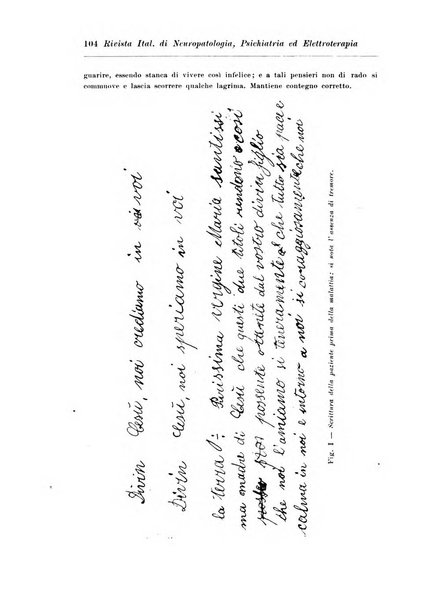 104 Rivista Ital. di Neuropatologia, Psichiatria ed Elettroterapia
guarire, essendo stanca di vivere così infelice; e a tali pensieri non di rado si
commuove e lascia scorrere qualche lagrima. Mantiene contegno corretto.
Divin Gesù, noi crediamo in voi
Divin Gesù, noi speriamo in voi
la terra Puissima virgine Maria santissi
ma madre di Gesù che questi due titoli rendono o così
possente ottenete dal vostro divin figlio
che noi l'amiamo si teneramente e che tutto sia pace
calma in noi e intorno a noi si coraggiosamente che noi
Fig. 1 — Scrittura della paziente prima della malattia; si nota l'assenza di tremore.